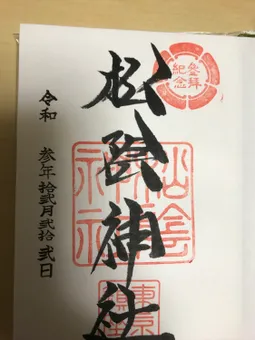 參拜
紀念
松陰神社
松陰
神社
東京
令和 参年拾弐月弐拾弐日